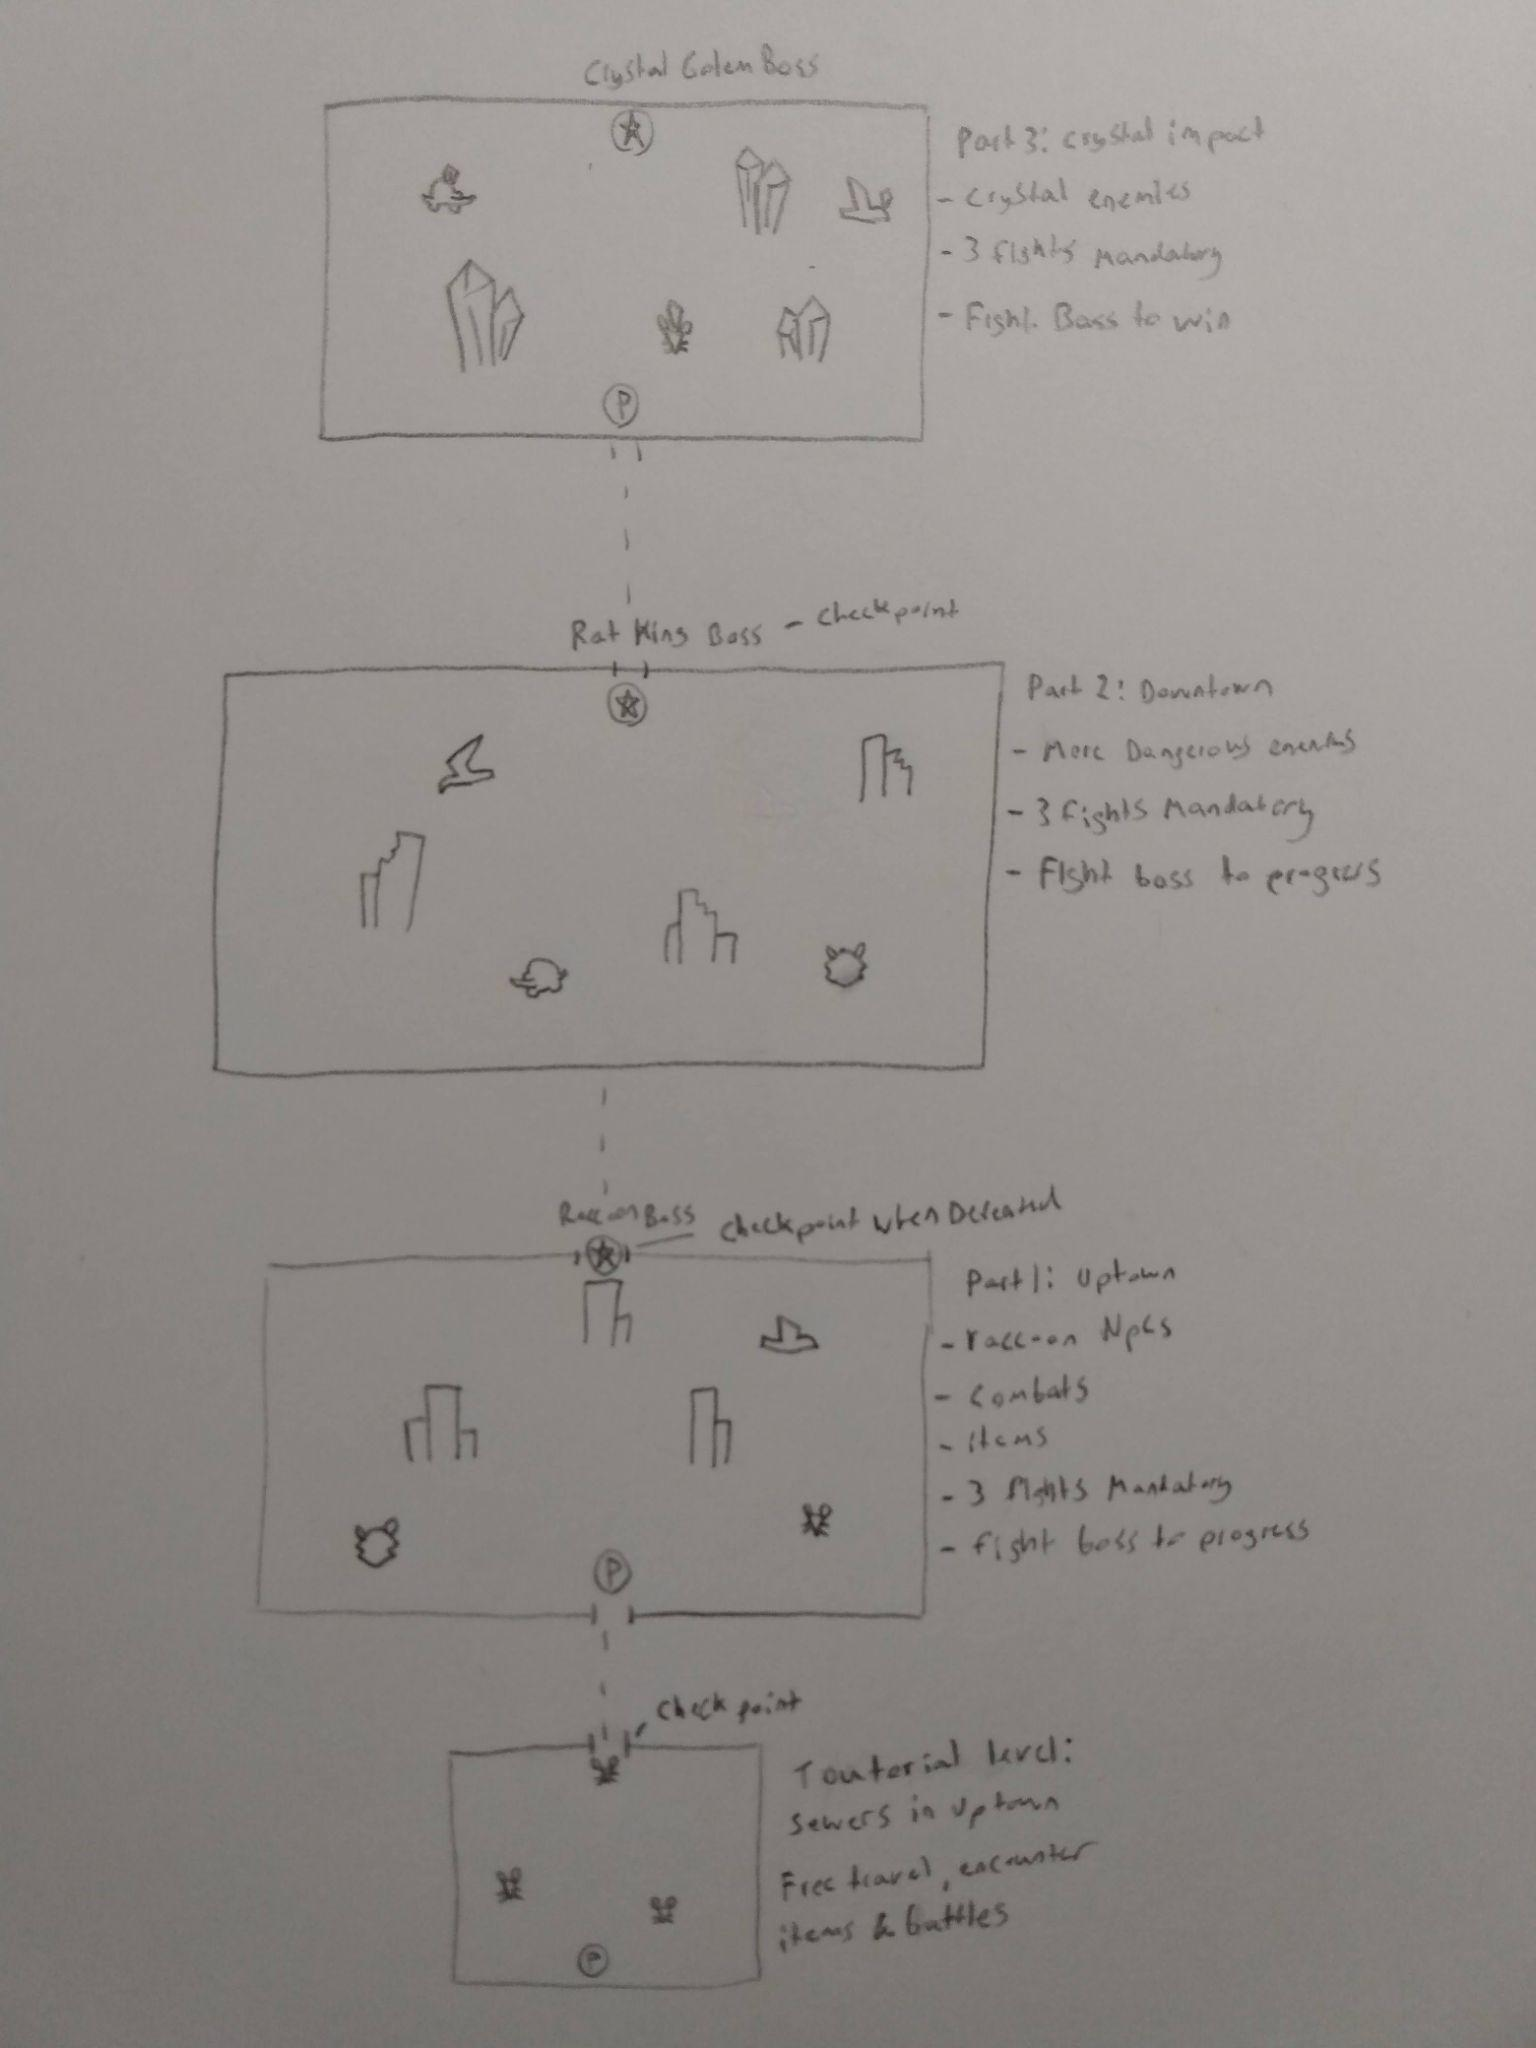 Crystal Golem Boss
Part 3: Crystal impact
- Crystal enemies
- 3 fights Mandatory
- Fight Boss to win
P
Rat King Boss - Checkpoint
Part 2: Downtown
- More Dangerous enemies
- 3 fights Mandatory
- Fight boss to progress
Raccoon Boss
Checkpoint when Defeated
Part 1: Uptown
- raccoon NPCs
- Combats
- items
- 3 fights Mandatory
- fight boss to progress
P
Checkpoint
Touterial level:
Sewers in Uptown
Free travel, encounter
items & battles
P